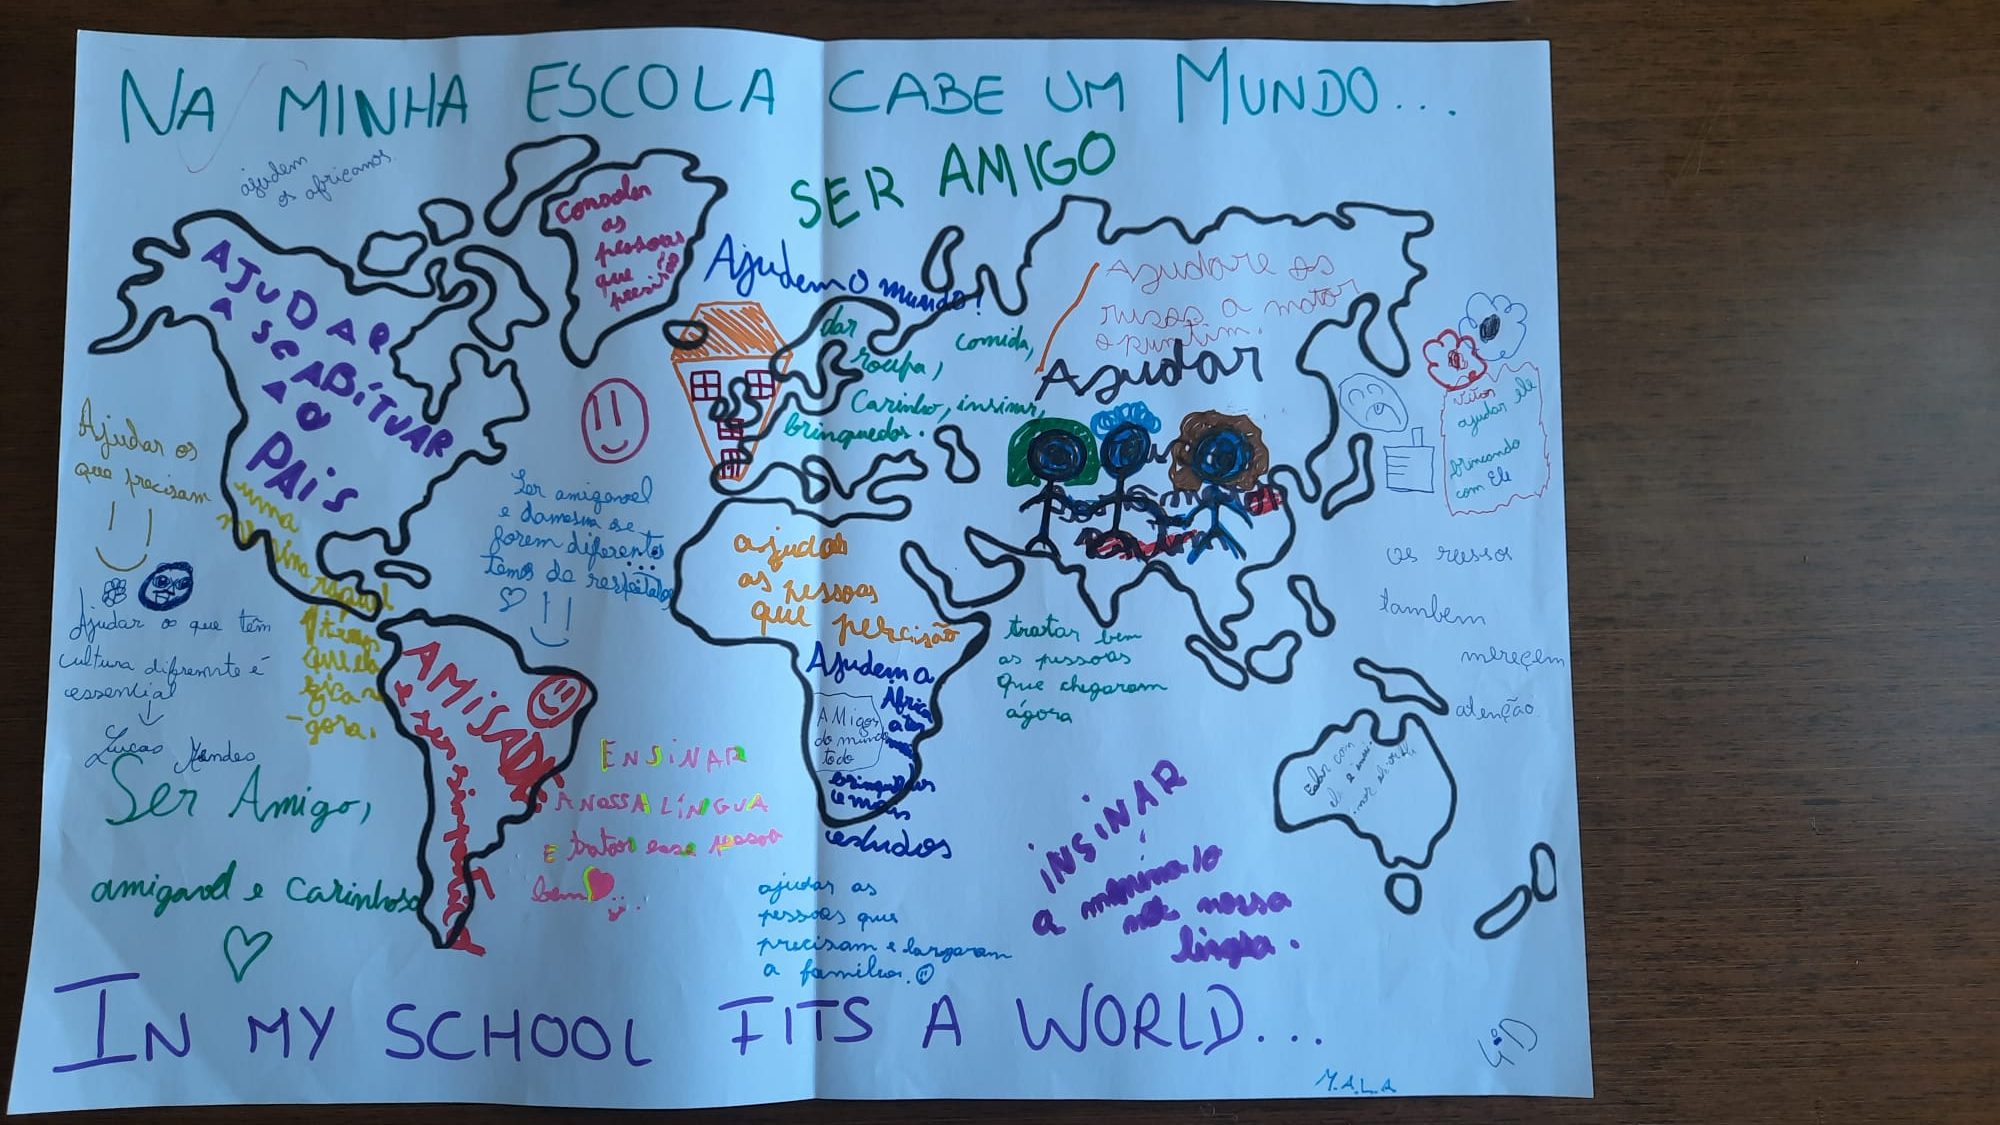 NA MINHA ESCOLA CABE UM MUNDO...
ajudem
os africanos.
SER AMIGO
Consolar
as
pessoas
que
AJUDAR
A SE ABITUAR
AO
PAiS
Ajudem o mundo!
dar comida,
roupa,
Carinho, insinar,
brinquedos.
Ajudare os
rusos a matar
o puntim.
Ajudar
Vitor
ajudar ele
brincando
com Ele
Ajudar os
que precisam
uma
menina
que ela
fica
gora.
Ser amigavel
e da mesma se
forem diferentes
temos de respeitalos
ajudas
as pessoas
que percisão
Ajudem a
África
brinquedos
e mais
estudos
AMigos
do mundo
todo
tratar bem
as pessoas
que chegaram
ágora
os russos
tambem
mereçem
atenção
Ajudar os que têm
cultura difremnte é
essential
Lucas Mendes
AMiSADE
e ser simpatico
Ser Amigo,
amigavel e Carinhoso
ENSiNAR
A NOSSA LíNGUA
E tratar esse pessoa
bem
ajudar as
pessoas que
precisam e largaram
a familia.
iNSiNAR
a menina lo
na nossa
lingua.
IN MY SCHOOL FITS A WORLD...
M.A.L.A